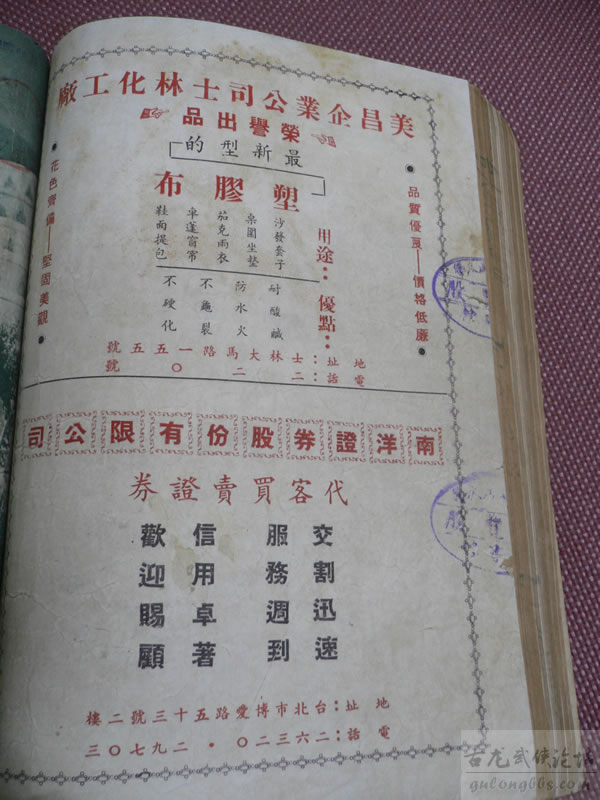 美昌企業公司士林化工廠
榮譽出品
最新型的
塑膠布
品質優良——價格低廉
用途：
沙發套子
桌圍坐墊
茄克雨衣
傘蓬窗帘
鞋面提包
優點：
耐酸鹼
防水火
不龜裂
不硬化
花色齊備——堅固美觀
地址：士林大馬路一五五號
電話：二二〇號
南洋證券股份有限公司
代客買賣證券
交割迅速
服務週到
信用卓著
歡迎賜顧
地址：台北市博愛路五十三號二樓
電話：二六三二〇・二九七〇三
古龙武侠论坛
gulongbbs.com